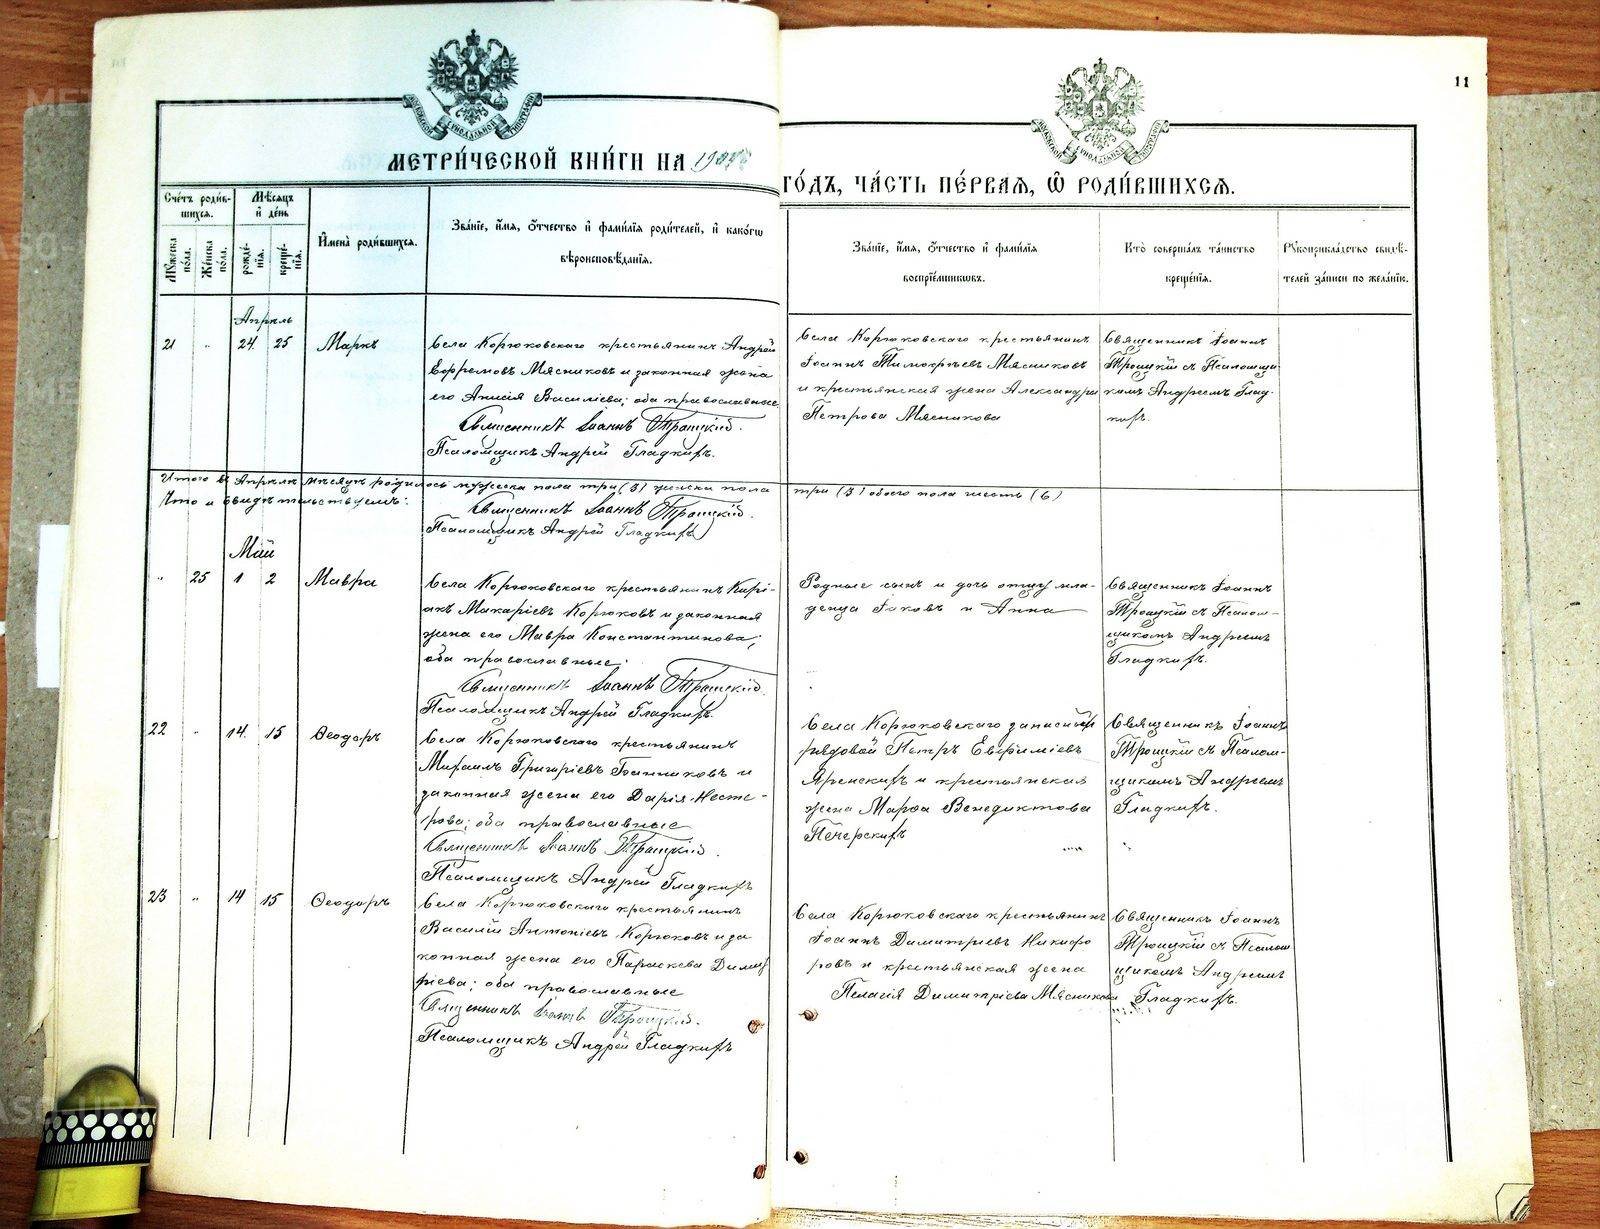 11
МОСКОВСКОЙ СѴНОДАЛЬНОЙ ТИПОГРАФІИ
МОСКОВСКОЙ СѴНОДАЛЬНОЙ ТИПОГРАФІИ
МЕТРИ́ЧЕСКОЙ КНИ́ГИ НА
ГО́ДЪ, ЧА́СТЬ ПЕ́РВАЯ, Ѡ РОДИ́ВШИХСЯ.
Сче́тъ роди́в-
шихся.
Мꙋжеска по́ла.
Же́нска по́ла.
Мѣ́сяцъ
и҆ де́нь
рожде́-
нїѧ.
креще́-
нїѧ.
И҆мена̀ роди́вшихся.
Зва́нїе, и҆́мя, ѻ҆́тчество и҆ фамѵ́лїя роди́телей, и҆ како́гѡ
вѣроисповѣ́данїя.
Зва́нїе, и҆́мя, ѻ҆́тчество и҆ фамѵ́лїя
воспрїе́мникѡвъ.
Кто̀ соверша́лъ та́инство
креще́нїя.
Рꙋкоприкла́дство свидѣ́-
телей за́писи по жела́нїю.
Апрѣль
21 „ 24 25 Маркъ
Села Корюковскаго крестьянинъ Андрей
Ефремовъ Мясниковъ и законная жена
его Анисія Василіева; оба православные
Священникъ Іоаннъ Троицкій.
Псаломщикъ Андрей Гладкихъ.
Села Корюковскаго крестьянинъ
Іоаннъ Тимофѣевъ Мясниковъ
и крестьянская жена Александра
Петрова Мясникова
Священникъ Іоаннъ
Троицкій съ Псаломщи-
комъ Андреемъ Глад-
кихъ.
Итого въ Апрѣлѣ мѣсяцѣ родилось мужеска пола три (3) женска пола три (3) обоего пола шесть (6)
Что и свидѣтельствуемъ:
Священникъ Іоаннъ Троицкій.
Псаломщикъ Андрей Гладкихъ
Май
„ 25 1 2 Мавра
Села Корюковскаго крестьянинъ Кирі-
акъ Макаріевъ Корюковъ и законная
жена его Мавра Константинова;
оба православные.
Священникъ Іоаннъ Троицкій.
Псаломщикъ Андрей Гладкихъ.
Родные сынъ и дочь отцу мла-
денца Іаковъ и Анна
Священникъ Іоаннъ
Троицкій съ Псалом-
щикомъ Андреемъ
Гладкихъ.
22 „ 14 15 Ѳеодоръ
Села Корюковскаго крестьянинъ
Михаилъ Григоріевъ и
законная жена его Дарія Несте-
рова; оба православные
Священникъ Іоаннъ Троицкій.
Псаломщикъ Андрей Гладкихъ
Села Корюковскаго запасный
рядовой Петръ Евѳиміевъ
Яренскихъ и крестьянская
жена Марѳа Венедиктова
Печерскихъ
Священникъ Іоаннъ
Троицкій съ Псалом-
щикомъ Андреемъ
Гладкихъ.
23 „ 14 15 Ѳеодоръ
Села Корюковскаго крестьянинъ
Василій Антоніевъ Корюковъ и за
конная жена его Параскева Димит
ріева; оба православные
Священникъ Іоаннъ Троицкій.
Псаломщикъ Андрей Гладкихъ
Села Корюковскаго крестьянинъ
Іоаннъ Димитріевъ Никифо
ровъ и крестьянская жена
Пелагія Димитріева Мясникова
Священникъ Іоаннъ
Троицкій съ Псалом
щикомъ Андреемъ
Гладкихъ.